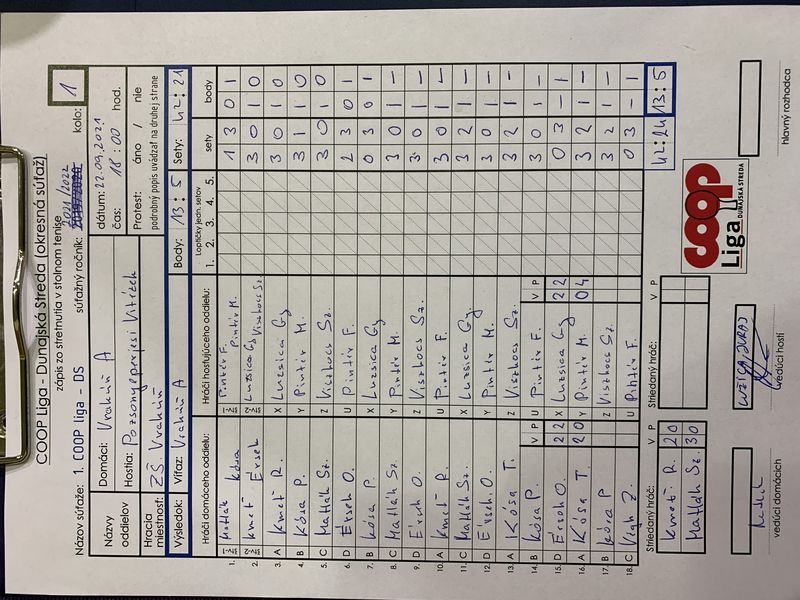 COOP Liga - Dunajská Streda (okresná súťaž)
zápis zo stretnutia v stolnom tenise
Názov súťaže: 1. COOP liga - DS súťažný ročník: 2021/2022 kolo: 1
Názvy oddielov
Domáci: Vrakúň A
Hostia: Pozsonyeperjesi Vitézek
dátum: 22.09.2021
čas: 18:00 hod.
Hracia miestnosť: ZŠ Vrakúň
Protest: áno / nie
podrobný popis uvádzať na druhej strane
Výsledok: Víťaz: Vrakúň A Body: 13 : 5 Sety: 42 : 21
Hráči domáceho oddielu: Hráči hosťujúceho oddielu: Loptičky jedn. setov sety body
1. 2. 3. 4. 5.
1. Matlák Kósa Pintér F. Pintér M. 1 3 0 1
2. Kmeť Érsek Luzsica Gy Viszhocs Sz. 3 0 1 0
3. A Kmeť R. X Luzsica Gy 3 0 1 0
4. B Kósa P. Y Pintér M. 3 1 1 0
5. C Matlák Sz. Z Viszhocs Sz. 3 0 1 0
6. D Érsek O. U Pintér F. 2 3 0 1
7. B Kósa P. X Luzsica Gy 0 3 0 1
8. C Matlák Sz. Y Pintér M. 3 0 1 –
9. D Érsek O. Z Viszhocs Sz. 3 0 1 –
10. A Kmeť R. U Pintér F. 3 0 1 –
11. C Matlák Sz. X Luzsica Gy. 3 2 1 –
12. D Érsek O. Y Pintér M. 3 0 1 –
13. A Kósa T. Z Viszhocs Sz. 3 2 1 –
14. B Kósa P. V P U Pintér F. V P 3 0 1 –
15. D Érsek O. 2 2 X Luzsica Gy 2 2 0 3 – 1
16. A Kósa T. 2 0 Y Pintér M. 0 4 3 2 1 –
17. B Kósa P Z Viszhocs Sz. 3 2 1 –
18. C Vígh Z. U Pintér F. 0 3 – 1
42:24 13:5
Striedaný hráč: V P Striedaný hráč: V P
Kmeť R. 2 0
Matlák Sz. 3 0
COOP
Liga DUNAJSKÁ STREDA
LUŽICA JURAJ
vedúci domácich vedúci hostí hlavný rozhodca